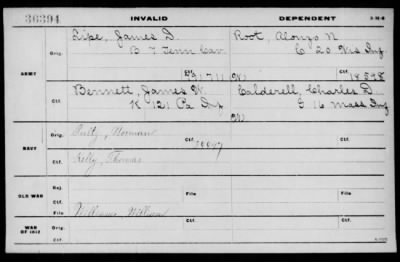 36394 INVALID DEPENDENT
ARMY
Orig. Lipe, James D. Root, Alonzo N
B 7 Tenn Cav. C 20 Wis Inf
Ctf. Ctf.
Ctf. Bennett, James W. Calderell, Charles D.
K 121 Pa Inf G 16 Mass Inf
W
NAVY
Orig. Norman
Ctf.
Ctf. Kelly, Thomas
OLD WAR
Rej. File
Ctf. File
Williams, William
WAR OF 1812
Orig. Ctf.